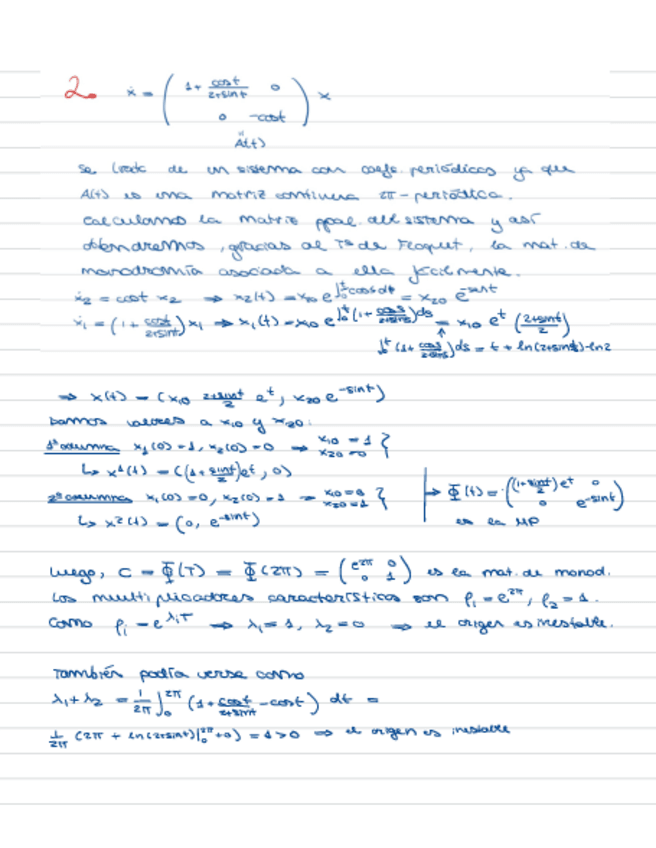 2.
ẋ = ( 1 + cost/(2+sint)  0 ; 0  -cost ) x
A(t)
Se trata de un sistema con coefs. periódicos ya que
A(t) es una matriz continua 2π-periódica.
Calculamos la matriz ppal. del sistema y así
obtendremos, gracias al Tª de Floquet, la mat. de
monodromía asociada a ella fácilmente.
ẋ₂ = cost x₂ ⇒ x₂(t) = x₂₀ e^{∫₀ᵗ cossds} = x₂₀ e^{-sint}
ẋ₁ = (1 + cost/(2+sint)) x₁ ⇒ x₁(t) = x₁₀ e^{∫₀ᵗ (1 + coss/(2+sins)) ds} = x₁₀ eᵗ ((2+sint)/2)
∫₀ᵗ (1 + coss/(2+sins)) ds = t + ln(2+sint) - ln2
⇒ x(t) = (x₁₀ (2+sint)/2 eᵗ, x₂₀ e^{-sint})
Damos valores a x₁₀ y x₂₀:
1ª columna x₁(0) = 1, x₂(0) = 0 ⇒ x₁₀ = 1 x₂₀ = 0 }
↳ x¹(t) = ((1 + sint/2) eᵗ, 0)
2ª columna x₁(0) = 0, x₂(0) = 1 ⇒ x₁₀ = 0 x₂₀ = 1 }
↳ x²(t) = (0, e^{-sint})
→ Φ(t) = ( (1 + sint/2) eᵗ  0 ; 0  e^{-sint} )
es la MP
Luego, C = Φ(T) = Φ(2π) = ( e^{2π}  0 ; 0  1 ) es la mat. de monod.
Los multiplicadores característicos son ρ₁ = e^{2π}, ρ₂ = 1.
Como ρᵢ = e^{λᵢT} ⇒ λ₁ = 1, λ₂ = 0 ⇒ el origen es inestable.
También podía verse como
λ₁ + λ₂ = 1/2π ∫₀^{2π} (1 + cost/(2+sint) - cost) dt =
1/2π (2π + ln(2+sint)|₀^{2π} + 0) = 1 > 0 ⇒ el origen es inestable